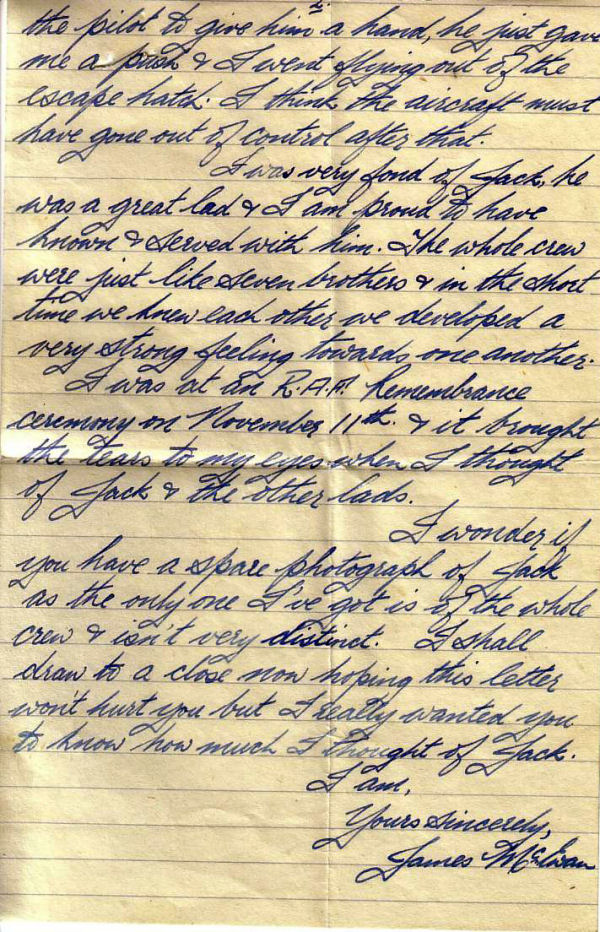 2.
the pilot to give him a hand, he just gave
me a push & I went flying out of the
escape hatch. I think the aircraft must
have gone out of control after that.
I was very fond of Jack, he
was a great lad & I am proud to have
known & served with him. The whole crew
were just like seven brothers & in the short
time we knew each other we developed a
very strong feeling towards one another.
I was at an R.A.F. Remembrance
ceremony on November 11th. & it brought
the tears to my eyes when I thought
of Jack & the other lads.
I wonder if
you have a spare photograph of Jack
as the only one I've got is of the whole
crew & isn't very distinct. I shall
draw to a close now hoping this letter
won't hurt you but I really wanted you
to know how much I thought of Jack.
I am,
Yours sincerely,
James McEwan